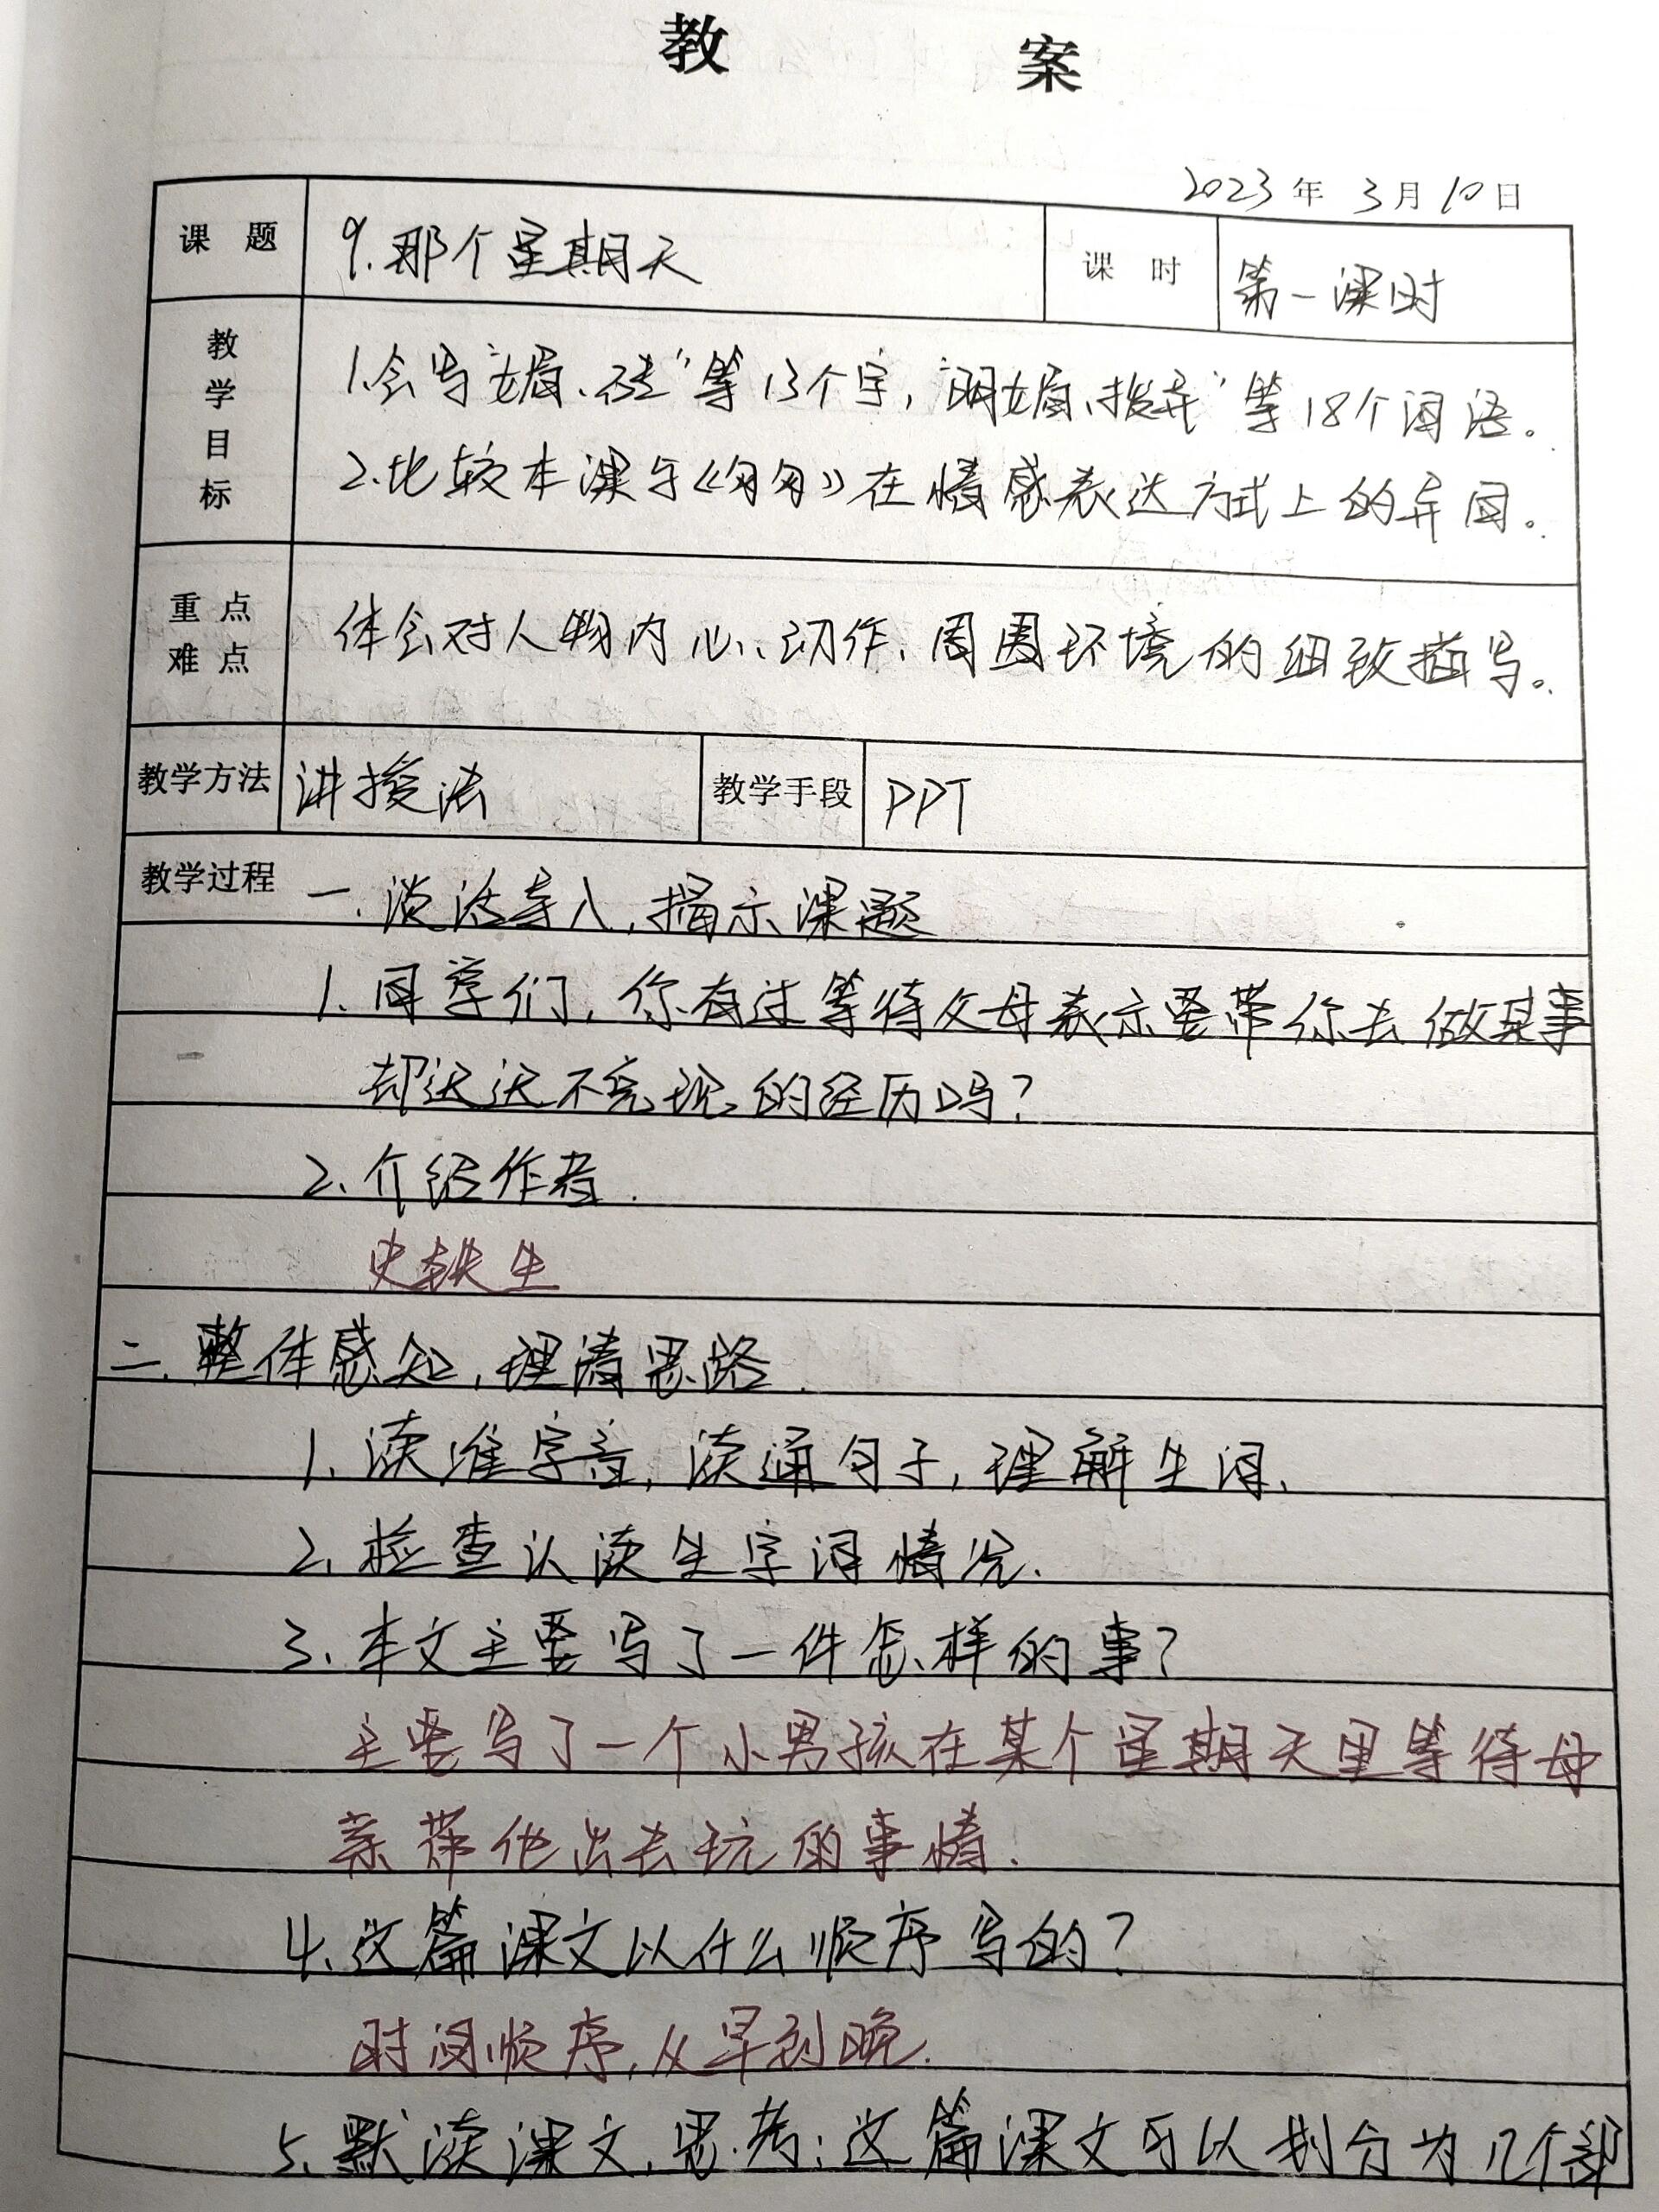 教 案
2023年 3月10日
课 题 9.那个星期天 课 时 第一课时
教学目标 1.会写"媚、砖"等13个字,"明媚、拨弄"等18个词语。
2.比较本课与《匆匆》在情感表达方式上的异同。
重点难点 体会对人物内心、动作、周围环境的细致描写。
教学方法 讲授法 教学手段 PPT
教学过程 一.谈话导入,揭示课题
1.同学们,你有过等待父母表示要带你去做某事
却迟迟不兑现的经历吗?
2.介绍作者.
史铁生
二.整体感知,理清思路.
1.读准字音,读通句子,理解生词.
2.检查认读生字词情况.
3.本文主要写了一件怎样的事?
主要写了一个小男孩在某个星期天里等待母
亲带他出去玩的事情.
4.这篇课文以什么顺序写的?
时间顺序,从早到晚.
5.默读课文,思考:这篇课文可以划分为几个部